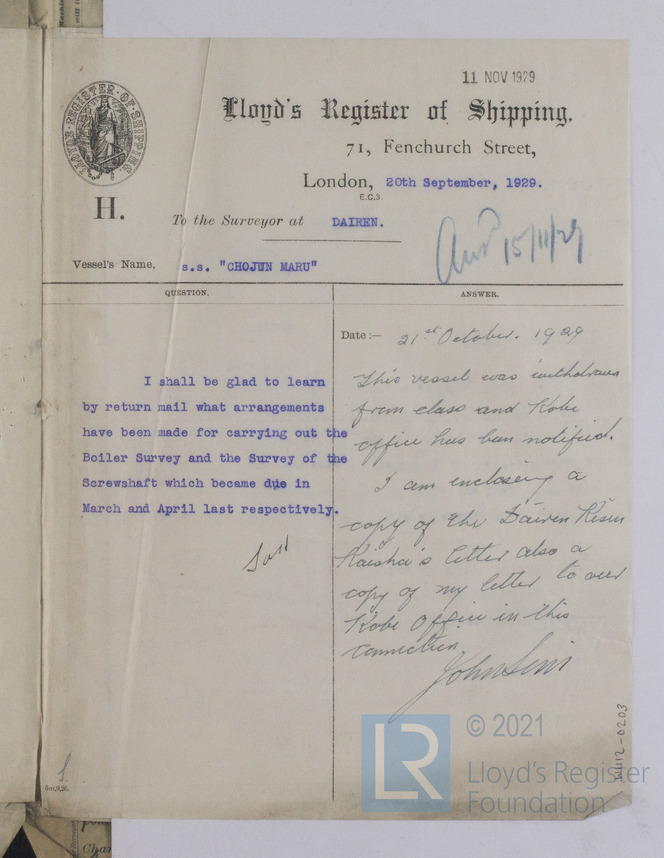 11 NOV 1929
LLOYDS REGISTER OF SHIPPING.
Lloyd's Register of Shipping.
71, Fenchurch Street,
London, 20th September, 1929.
E.C.3.
H.
To the Surveyor at DAIREN.
15/11/29
Vessel's Name, s.s. "CHOJUN MARU"
QUESTION.
I shall be glad to learn
by return mail what arrangements
have been made for carrying out the
Boiler Survey and the Survey of the
Screwshaft which became due in
March and April last respectively.
ANSWER.
Date:— 21st October. 1929
This vessel was withdrawn
from class and Kobe
office has been notified.
I am enclosing a
copy of the Dairen Kisen
Kaisha's letter also a
copy of my letter to our
Kobe Office in this
connection
John
6m,9,26.
W112-0203
LR
© 2021
Lloyd's Register
Foundation